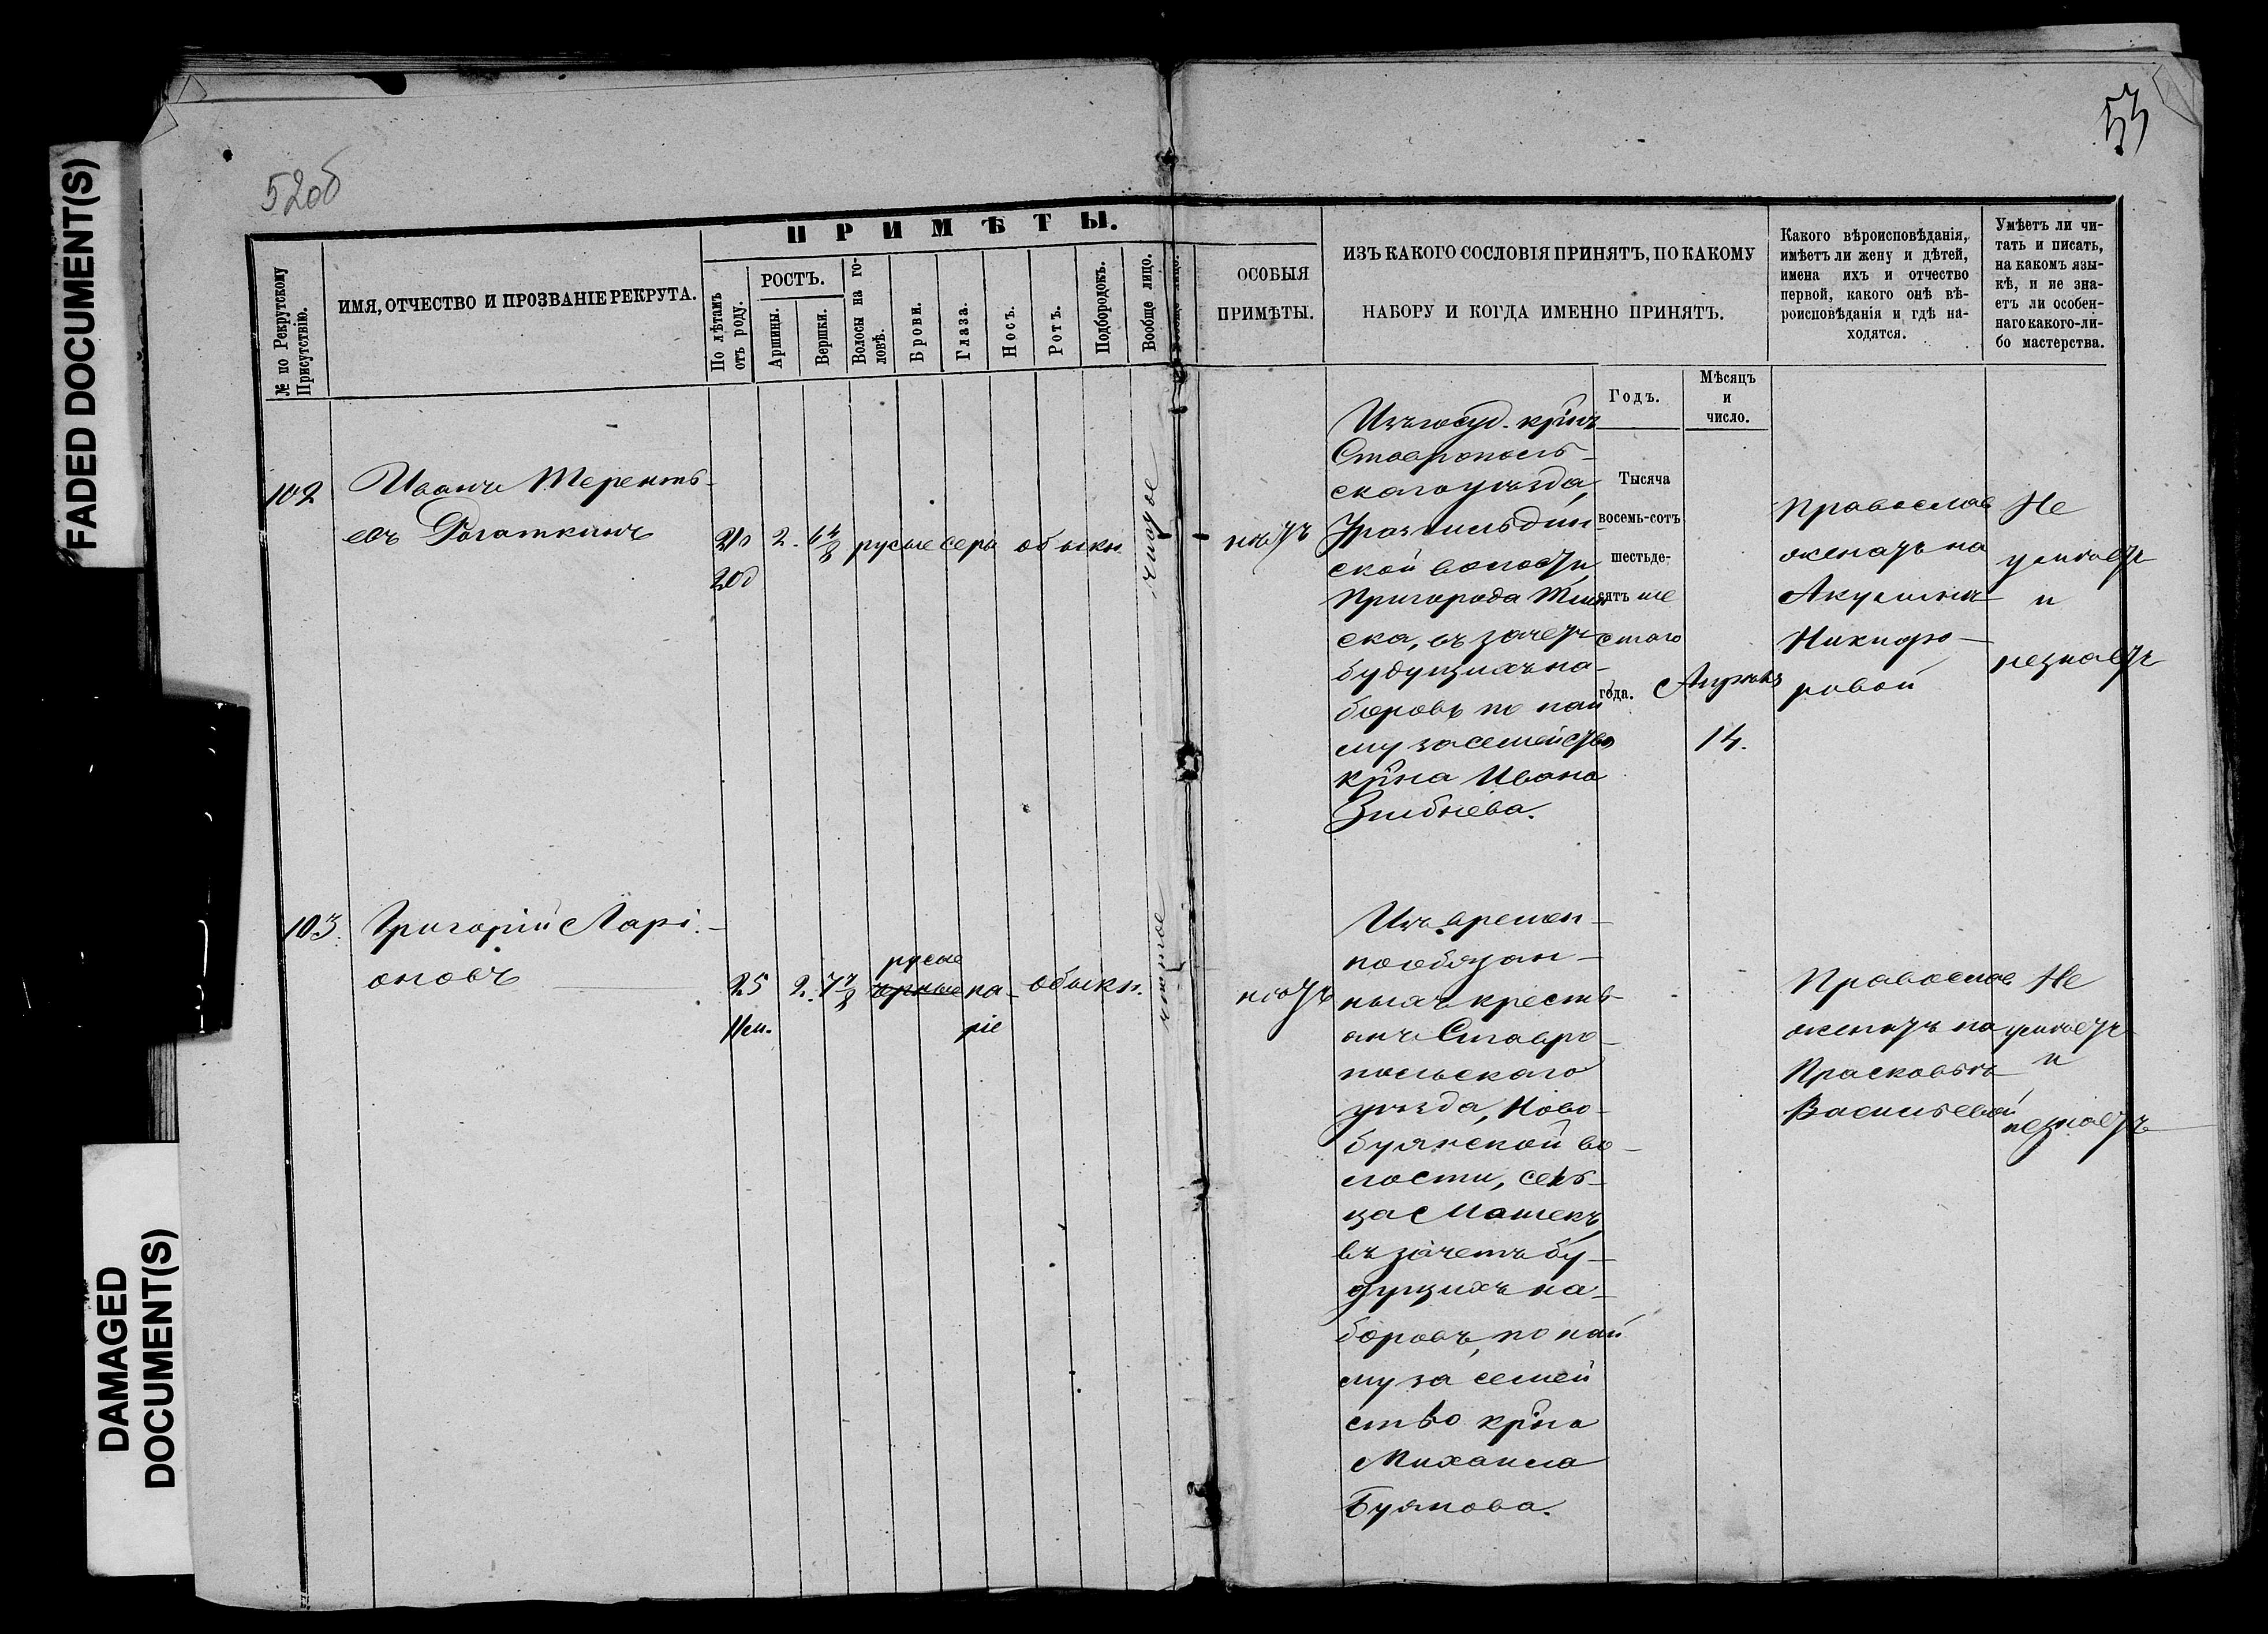 FADED DOCUMENT(S)
DAMAGED
DOCUMENT(S)
52об
53
ПРИМѢТЫ.
№ по Рекрутскому
Присутствію.
ИМЯ, ОТЧЕСТВО И ПРОЗВАНІЕ РЕКРУТА.
По лѣтамъ
отъ роду.
РОСТЪ.
Аршины.
Вершки.
Волосы на го-
ловѣ.
Брови.
Глаза.
Носъ.
Ротъ.
Подбородокъ.
Вообще лицо.
ОСОБЫЯ
ПРИМѢТЫ.
ИЗЪ КАКОГО СОСЛОВІЯ ПРИНЯТЪ, ПО КАКОМУ
НАБОРУ И КОГДА ИМЕННО ПРИНЯТЪ.
Годъ.
Мѣсяцъ
и
число.
Какого вѣроисповѣданія,
имѣетъ ли жену и дѣтей,
имена ихъ и отчество
первой, какого онѣ вѣ-
роисповѣданія и гдѣ на-
ходятся.
Умѣетъ ли чи-
тать и писать,
на какомъ язы-
кѣ, и не зна-
етъ ли особен-
наго какого-ли-
бо мастерства.
102
Иванъ Теренть-
евъ Рогаткинъ
2. 6 4/8 русые серы обыкн.
чистое
нѣтъ
Изъ госуд. кр̃нъ
Ставрополь-
скаго уѣзда,
ской волости
Пригорода
ска, въ зачетъ
будущихъ на-
боровъ по най
му за семейство
кр̃на Ивана
Тысяча
восемь-сотъ
шестьде-
сятъ ше
стаго
года.
Апрѣль
14.
Православ
женатъ на
Акулинѣ
Никифо-
ровой
Не
умѣетъ
и
незнаетъ
103.
Григорій Ларі-
оновъ
25
11 м.
2. 7 7/8
русые
черные
ка-
ріе
обыкн.
чистое
нѣтъ
Изъ времен-
нообязан-
ныхъ кресть-
анъ Ставро-
польскаго
уѣзда, Ново-
буянской во-
лости, сель-
ца Машекъ,
въ зачетъ бу-
дущихъ на-
боровъ, по най
му за семей
ство кр̃на
Михаила
Буянова.
Православ
женатъ на
Прасковьѣ
Васильевой
Не
умѣетъ
и
незнаетъ